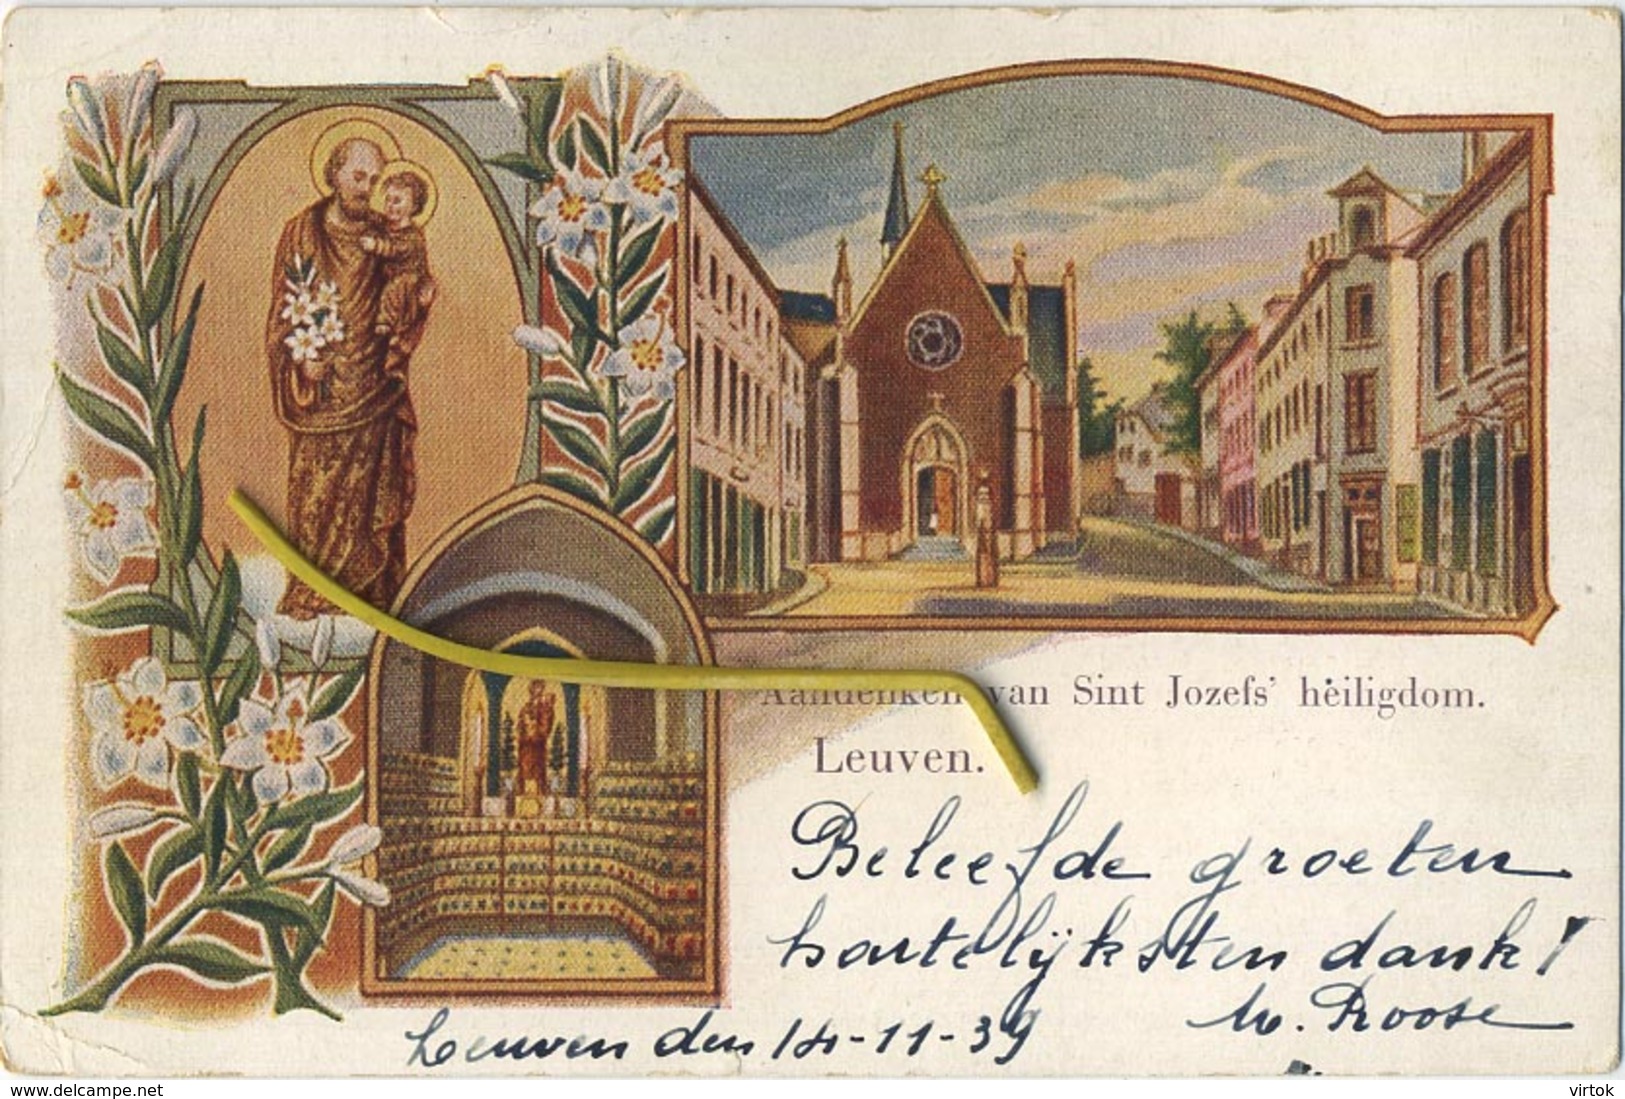 Aandenken van Sint Jozefs' heiligdom.
Leuven.
Beleefde groeten
hartelijksten dank!
M. Roose
Leuven den 14-11-39
www.delcampe.net
virtok